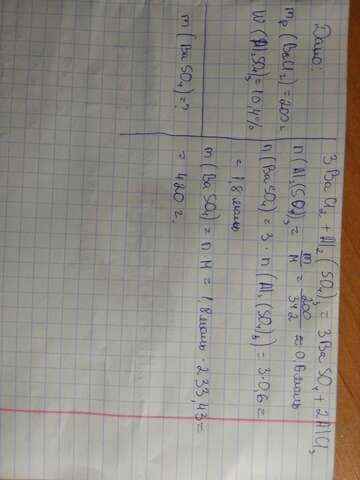 Дано:
mр(BaCl₂)=200г
W(Al₂SO₄)₃=10,4%
m(BaSO₄)=?
3BaCl₂ + Al₂(SO₄)₃ = 3BaSO₄ + 2AlCl₃
n(Al₂(SO₄)₃ = m/M = 200/342 ≈ 0,6моль
n(BaSO₄) = 3·n(Al₂(SO₄)₃) = 3·0,6 =
= 1,8 моль
m(BaSO₄) = n M = 1,8моль · 233,43 =
= 420 г.